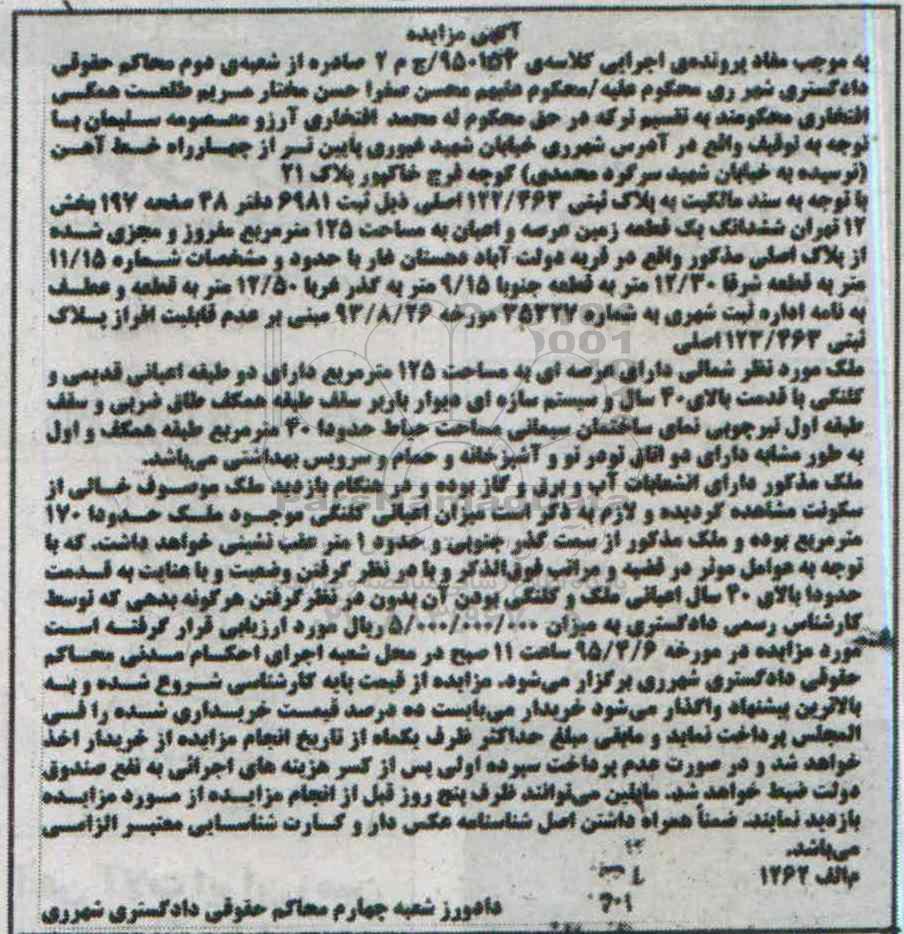 آگهی مزایده
به موجب مفاد پرونده‌ی اجرایی کلاسه‌ی ۹۵۰۱۵۳/ج م ۲ صادره از شعبه‌ی دوم محاکم حقوقی
دادگستری شهر ری محکوم علیه/محکوم علیهم محسن صغرا حسن مختار مریم طلعت همگی
افتخاری محکومند به تقسیم ترکه در حق محکوم له محمد افتخاری آرزو معصومه سلیمان با
توجه به توقیف واقع در آدرس شهرری خیابان شهید غیوری پایین تر از چهارراه خط آهن
(نرسیده به خیابان شهید سرگرد محمدی) کوچه فرج خاکپور پلاک ۲۱
با توجه به سند مالکیت به پلاک ثبتی ۱۲۲/۴۶۳ اصلی ذیل ثبت ۶۹۸۱ دفتر ۴۸ صفحه ۱۹۷ بخش
۱۲ تهران ششدانگ یک قطعه زمین عرصه و اعیان به مساحت ۱۲۵ مترمربع مفروز و مجزی شده
از پلاک اصلی مذکور واقع در قریه دولت آباد دهستان غار با حدود و مشخصات شماره ۱۱/۱۵
متر به قطعه شرقا ۱۲/۳۰ متر به قطعه جنوبا ۹/۱۵ متر به گذر غربا ۱۲/۵۰ متر به قطعه و عطف
به نامه اداره ثبت شهری به شماره ۳۵۳۲۷ مورخه ۹۳/۸/۲۶ مبنی بر عدم قابلیت افراز پلاک
ثبتی ۱۲۳/۴۶۳ اصلی
ملک مورد نظر شمالی دارای عرصه ای به مساحت ۱۲۵ مترمربع دارای دو طبقه اعیانی قدیمی و
کلنگی با قدمت بالای ۴۰ سال و سیستم سازه ای دیوار باربر سقف طبقه همکف طاق ضربی و سقف
طبقه اول تیرچوبی نمای ساختمان سیمانی مساحت حیاط حدودا ۴۰ مترمربع طبقه همکف و اول
به طور مشابه دارای دو اتاق تودر تو و آشپزخانه و حمام و سرویس بهداشتی می‌باشد.
ملک مذکور دارای انشعابات آب و برق و گاز بوده و در هنگام بازدید ملک موصوف خالی از
سکونت مشاهده گردیده و لازم به ذکر است میزان اعیانی کلنگی موجود ملک حدودا ۱۷۰
مترمربع بوده و ملک مذکور از سمت گذر جنوبی و حدود ۱ متر عقب نشینی خواهد داشت. که با
توجه به عوامل موثر در قضیه و مراتب فوق‌الذکر و با در نظر گرفتن وضعیت و با عنایت به قدمت
حدودا بالای ۴۰ سال اعیانی ملک و کلنگی بودن آن بدون در نظر گرفتن هرگونه بدهی که توسط
کارشناس رسمی دادگستری به میزان ۵/۰۰۰/۰۰۰/۰۰۰ ریال مورد ارزیابی قرار گرفته است
مورد مزایده در مورخه ۹۵/۴/۶ ساعت ۱۱ صبح در محل شعبه اجرای احکام مدنی محاکم
حقوقی دادگستری شهرری برگزار می‌شود. مزایده از قیمت پایه کارشناسی شروع شده و به
بالاترین پیشنهاد واگذار می‌شود خریدار می‌بایست ده درصد قیمت خریداری شده را فی
المجلس پرداخت نماید و مابقی مبلغ حداکثر ظرف یکماه از تاریخ انجام مزایده از خریدار اخذ
خواهد شد و در صورت عدم پرداخت سپرده اولی پس از کسر هزینه های اجرائی به نفع صندوق
دولت ضبط خواهد شد. مایلین می‌توانند ظرف پنج روز قبل از انجام مزایده از مورد مزایده
بازدید نمایند. ضمناً همراه داشتن اصل شناسنامه عکس دار و کارت شناسایی معتبر الزامی
می‌باشد.
م/الف ۱۲۶۲
دادورز شعبه چهارم محاکم حقوقی دادگستری شهرری